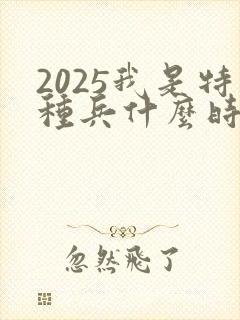 2025我是特
種兵什麼時
忽然飛了